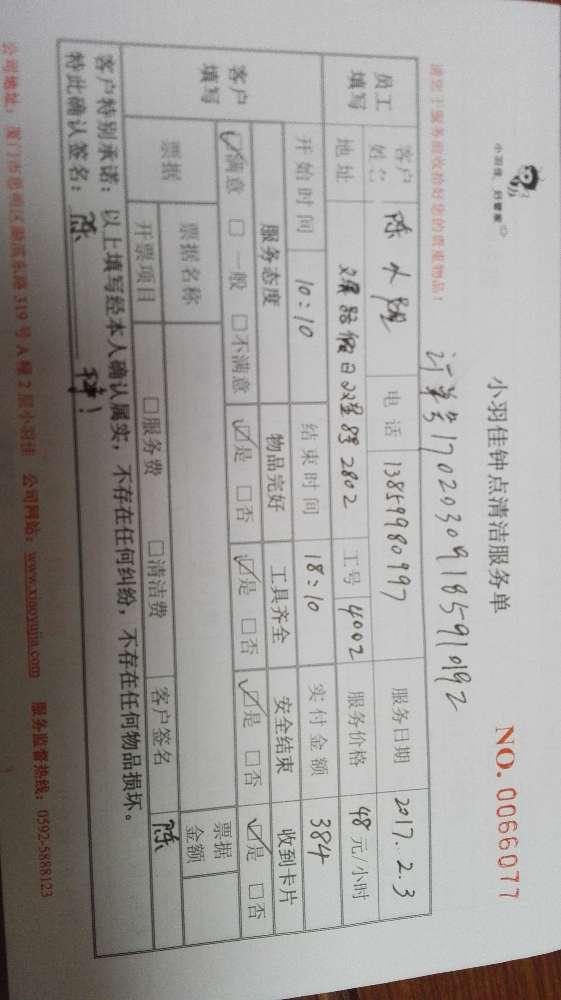 小羽佳，好管家
小羽佳钟点清洁服务单
NO.0066077
请您于服务前收拾好您的贵重物品！
订单号170203091859192
员工填写
客户姓名 陈水 电话 13859980997 服务日期 2017.2.3
地址 假日 2802 工号 4002 服务价格 48元/小时
开始时间 10:10 结束时间 18:10 实付金额 384
客户填写
服务态度 物品完好 工具齐全 安全结束 收到卡片
☑满意 □一般 □不满意 ☑是 □否 ☑是 □否 ☑是 □否 ☑是 □否
票据 票据名称 票据金额
开票项目 □服务费 □清洁费 客户签名 陈
客户特别承诺：以上填写经本人确认属实，不存在任何纠纷，不存在任何物品损坏。
特此确认签名：陈
公司地址：厦门市思明区湖滨东路319号A幢2层小羽佳 公司网站：www.xiaoyujia.com 服务监督热线：0592-5888123